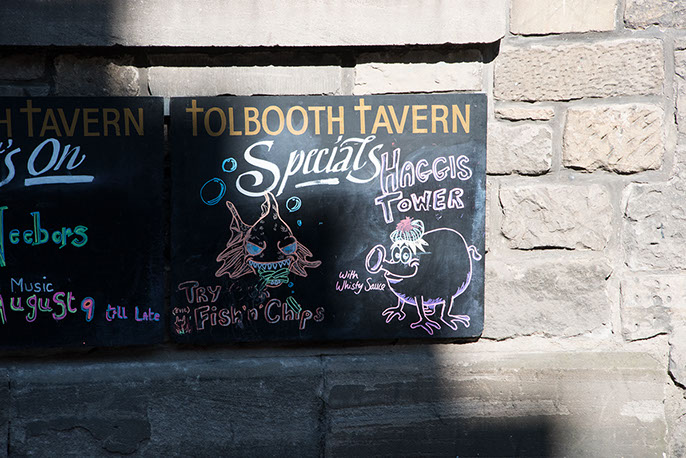 H TAVERN
's On
Neebors
Music
August 9 till Late
TOLBOOTH TAVERN
Specials
HAGGIS
TOWER
With
Whisky Sauce
TRY
Fish 'n' Chips